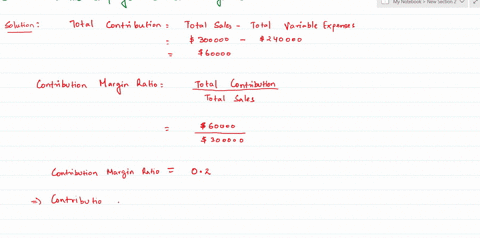 My Notebook > New Section 2
Solution: Total Contribution = Total Sales - Total Variable Expenses
= $300000 - $240000
= $60000
Contribution Margin Ratio: Total Contribution
Total Sales
= $60000
$300000
Contribution Margin Ratio = 0.2
=> Contributio